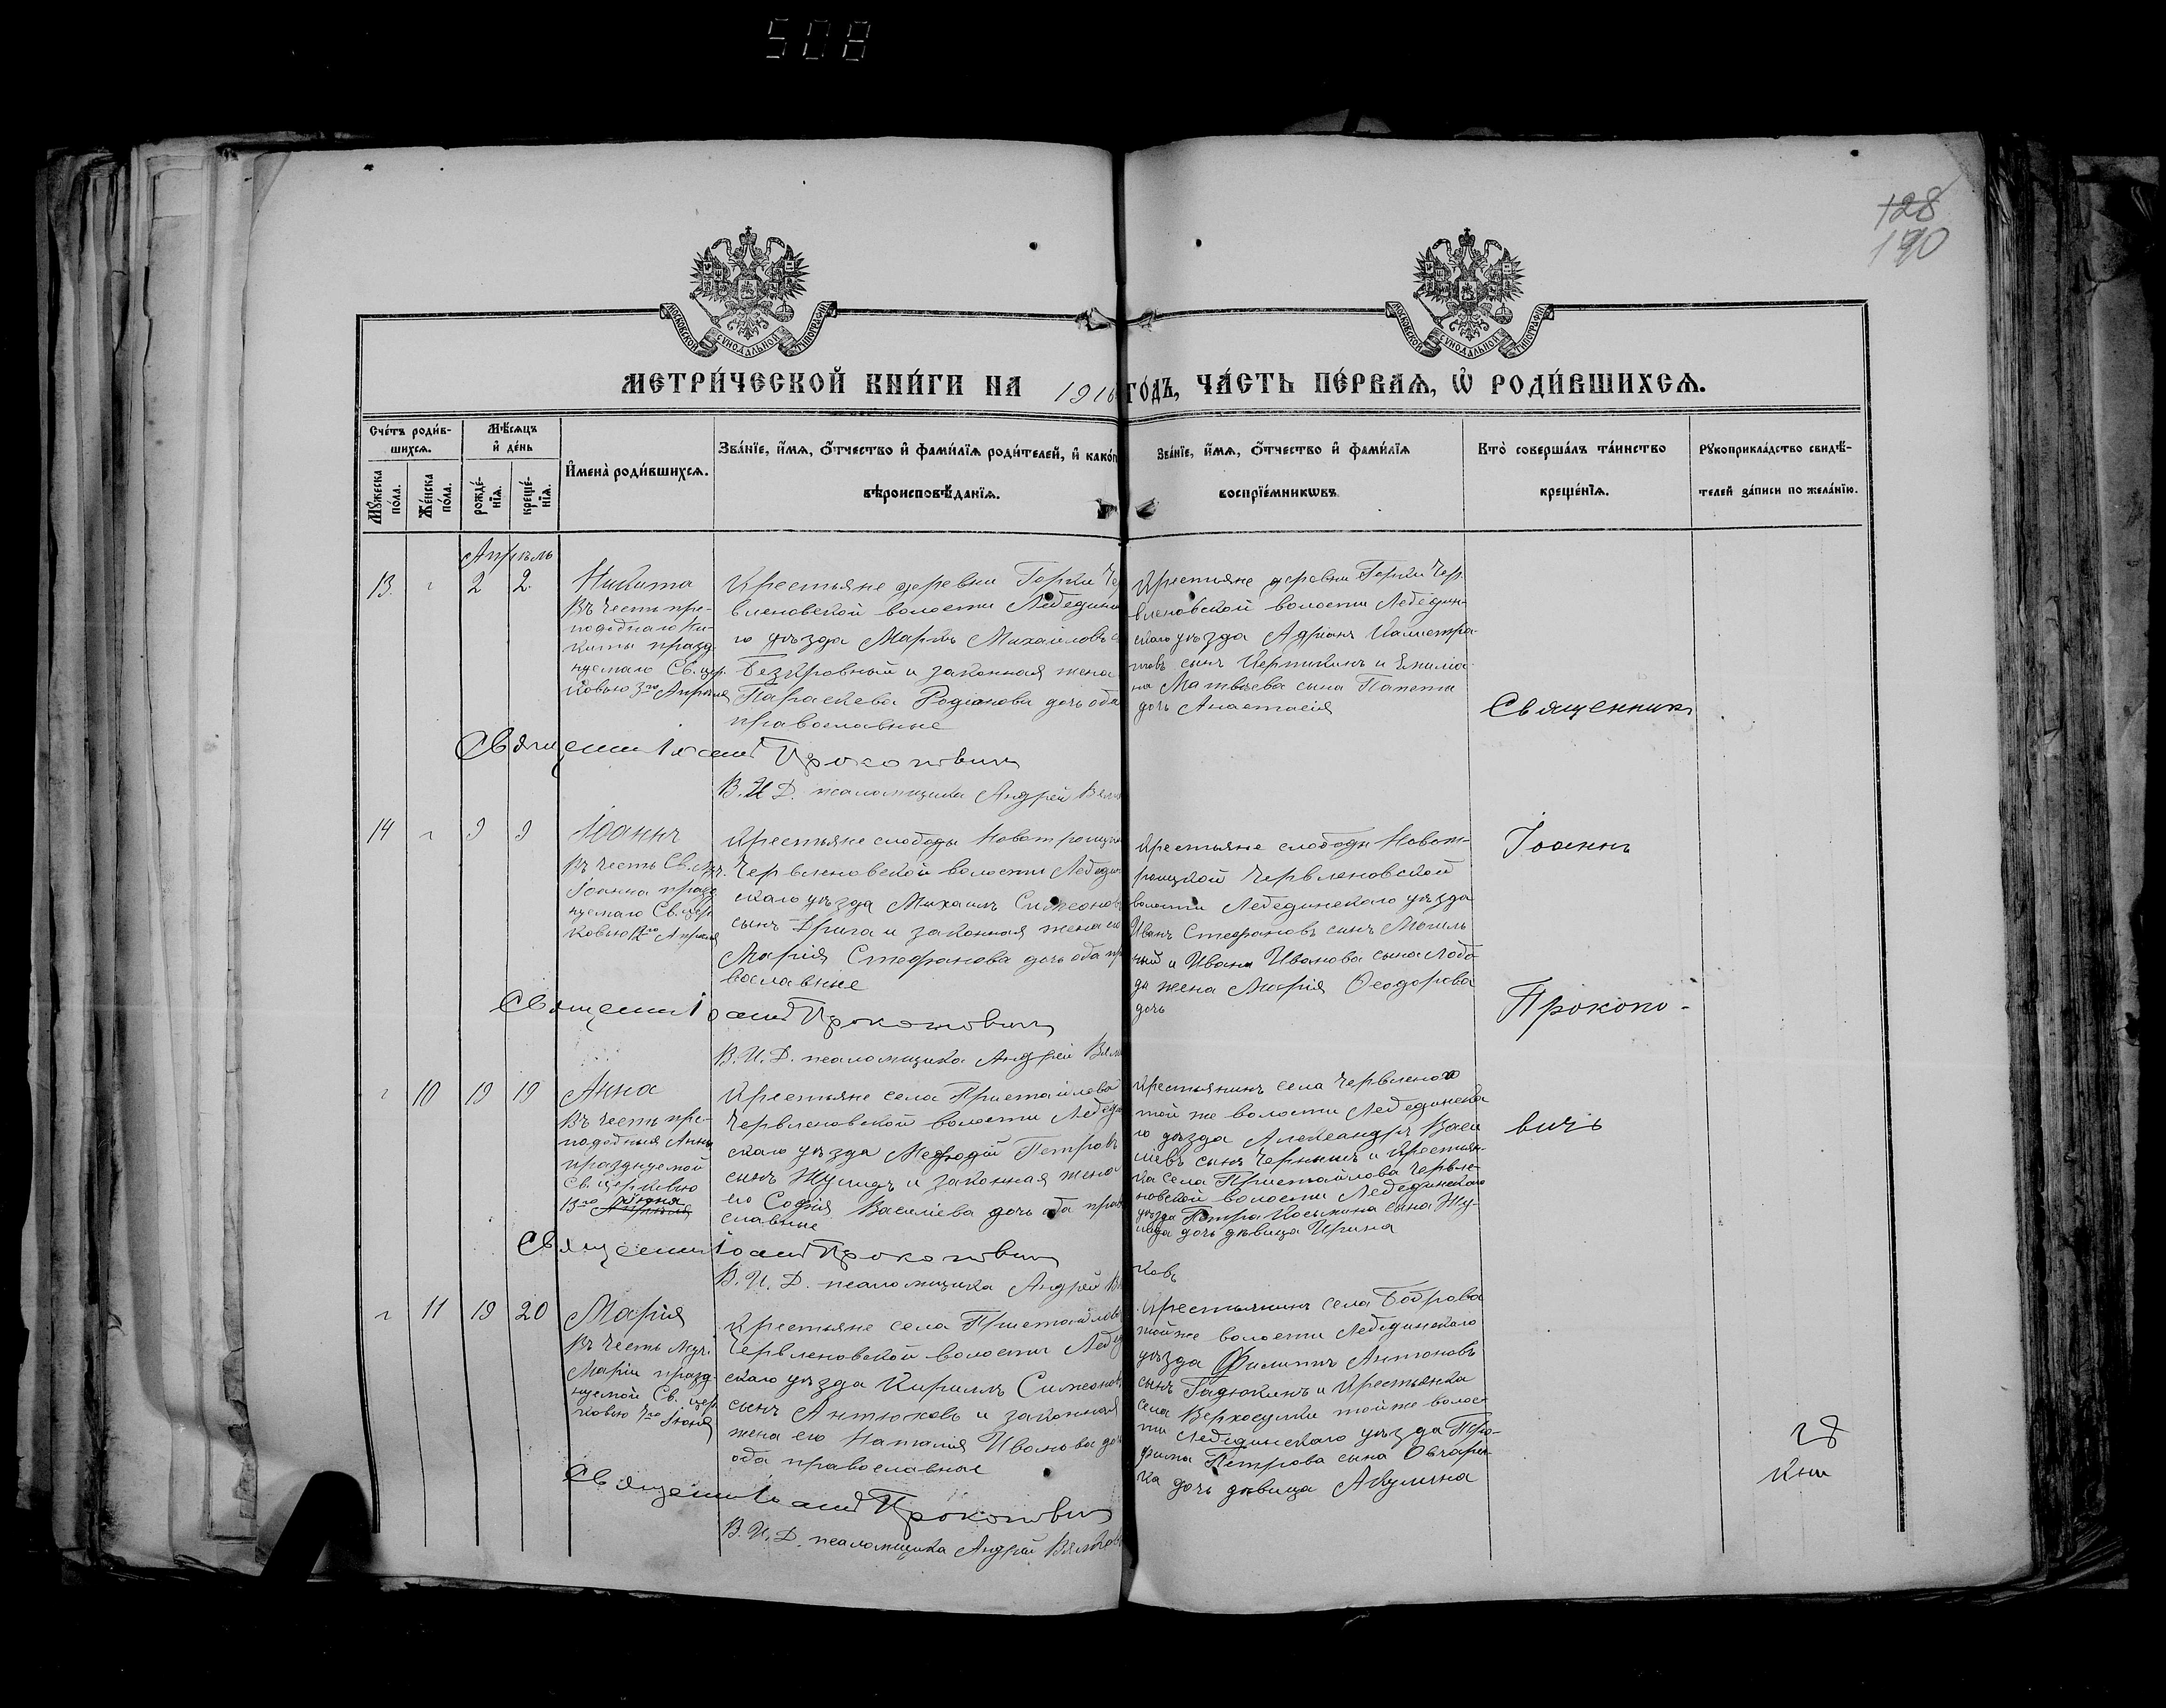 508
128
190
МОСКОВСКОЙ СУНОДАЛЬНОЙ ТИПОГРАФІИ
МОСКОВСКОЙ СУНОДАЛЬНОЙ ТИПОГРАФІИ
МЕТРИ́ЧЕСКОЙ КНИ́ГИ НА 1916 ГО́ДЪ, ЧА́СТЬ ПЕ́РВАѦ, Ѡ҆ РОДИ́ВШИХСѦ.
Сче́тъ роди́в-
шихсѧ.
Мꙋ́жеска
по́ла.
Же́нска
по́ла.
Мѣ́сѧцъ
и҆ де́нь
рожде́-
нїѧ.
креще́-
нїѧ.
И҆мена̀ роди́вшихсѧ.
Зва́нїе, и҆́мѧ, ѻ҆́тчество и҆ фами́лїѧ роди́телей, и҆ како́г
вѣроисповѣ́данїѧ.
Зва́нїе, и҆́мѧ, ѻ҆́тчество и҆ фами́лїѧ
воспрїе́мникѡвъ.
Кто̀ соверша́лъ та́инство
креще́нїѧ.
Рꙋкоприкла́дство свидѣ́-
телей за́писи по жела́нїю.
Апрѣль
13.
2
2.
Никита
Въ честь пре-
подобнаго Ни-
киты празд
нуемаго Св. цер.
ковью 3го Апрѣля
Крестьяне деревни Горки Чер
вленовской волости Лебедин
го уѣзда Маркъ Михаиловъ с
Безкровный и законная жена
Параскева Родіонова дочь оба
православные
Крестьяне деревни Горки Чер
вленовской волости Лебедин-
скаго уѣзда Адріанъ Калистра-
товъ сынъ и Емиліа-
на Матвѣева сына
дочь Анастасія
Священникъ
Священ Іоаннъ Прокоповичъ
В. И. Д. псаломщика Андрей Вял
14
9
9
Іоаннъ
Въ честь Св.
Іоанна празд
нуемаго Св. цер
ковью 12го Апрѣля
Крестьяне слободы Новотроицкой
Червленовской волости Лебедин
скаго уѣзда Михаилъ Симеонов
сынъ и законная жена его
Марія Стефанова дочь оба пр
вославные
Крестьяне слободы Новот-
роицкой Червленовской
волости Лебединскаго уѣзда
Иванъ Стефановъ сынъ Могиль
ный и Ивана Иванова сына Лобо
ды жена Марія Ѳеодорова
дочь
Іоаннъ
Прокопо-
Священ Іоаннъ Прокоповичъ
В. И. Д. псаломщика Андрей Вял
10
19
19
Анна
Въ честь пре-
подобныя Анны
празднуемой
Св. церковью
13го Іюня
Крестьяне села Пристайлова
Червленовской волости Лебедин
скаго уѣзда Меѳодій Петровъ
сынъ и законная жена
его Софія Василіева дочь оба прав
славные
Крестьянинъ села Червленаго
той же волости Лебединска
го уѣзда Александръ Васи
ліевъ сынъ Чернышъ и крестьян-
ка села Пристайлова Червле-
новской волости Лебединскаго
уѣзда Петра Косьмина сына
дочь дѣвица Ирина
вичъ
Священ Іоаннъ Прокоповичъ
В. И. Д. псаломщика Андрей Вя
ковъ
11
19
20
Марія
Въ честь муч.
Маріи празд-
нуемой Св. цер
ковью 7го Іюня
Крестьяне села Пристайлова
Червленовской волости Лебед
скаго уѣзда Кириллъ Симеонов
сынъ Антюховъ и законная
жена его Наталія Иванова доч
оба православные
Крестьянинъ села Боброва
той же волости Лебединскаго
уѣзда Филиппъ Антоновъ
сынъ Гадюкинъ и крестьянка
села Верхосулки той же волос-
ти Лебединскаго уѣзда
Петрова сына Овчарен-
ка дочь дѣвица Акулина
Священ Іоаннъ Прокоповичъ
В. И. Д. псаломщика Андрей Вялковъ